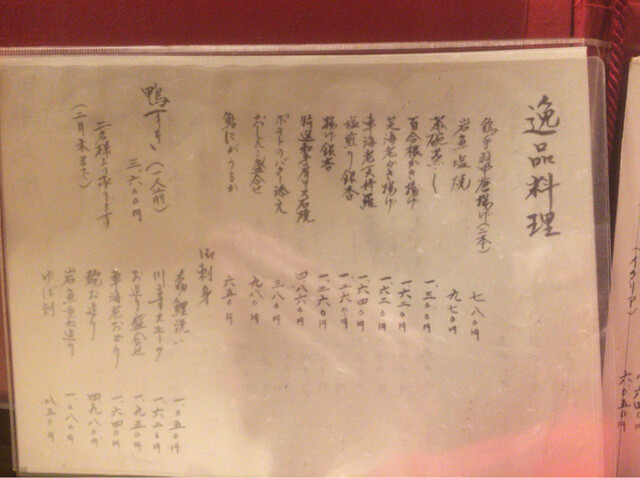 逸品料理
鶏手羽唐揚げ(二本) 七八〇円
岩魚塩焼 九七〇円
茶碗蒸し 一、三〇〇円
百合根かき揚げ 一、六二〇円
芝海老かき揚げ 一、六二〇円
車海老天麩羅 一、六四〇円
塩煎り銀杏 一、二六〇円
揚げ銀杏 一、二六〇円
特選和牛石焼 四、八六〇円
ポテトのバター添え 三八〇円
おしんこ盛合せ 九八〇円
鮎にがうるか 六五〇円
鴨すき(一人前)
三、六〇〇円
二名様より承ります
(二月末まで)
御刺身
鯉洗い 一、〇五〇円
一、六二〇円
お造り盛合せ 一、九五〇円
車海老おどり 一、六四〇円
鮑お造り 四、九八〇円
岩魚お造り 一、〇八〇円
ゆば刺 八五〇円
(イタリア)
六、〇五〇円